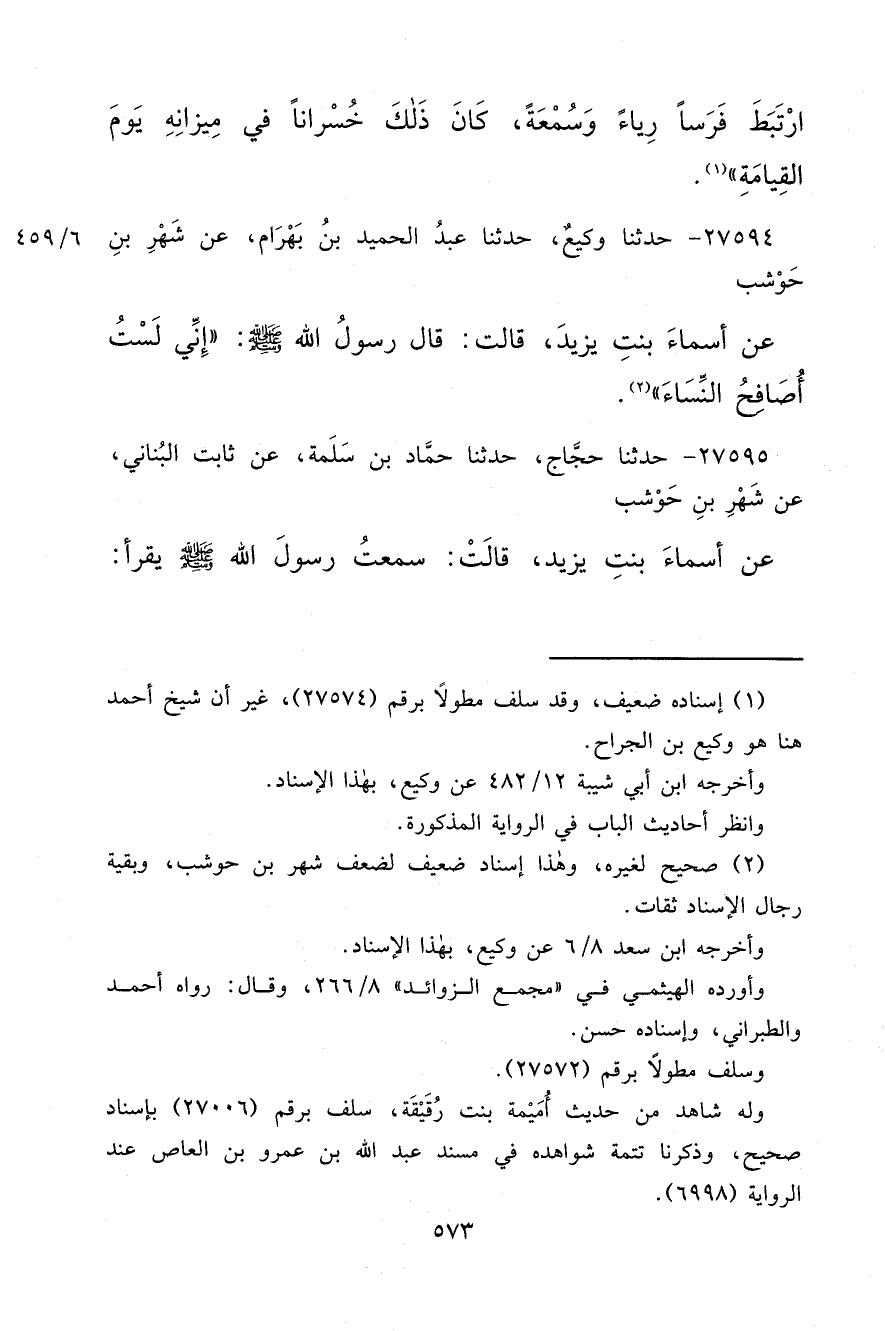 ارْتَبَطَ فَرَساً رِياءً وَسُمْعَةً، كَانَ ذَلٰكَ خُسْراناً في مِيزانِهِ يَومَ
القِيامَةِ»(١).
٢٧٥٩٤- حدثنا وكيعٌ، حدثنا عبدُ الحميد بنُ بَهْرَام، عن شَهْرِ بنِ ٤٥٩/٦
حَوْشب
عن أسماءَ بنتِ يزيدَ، قالت: قال رسولُ الله ﷺ: «إِنِّي لَسْتُ
أُصَافِحُ النِّسَاءَ»(٢).
٢٧٥٩٥- حدثنا حجَّاج، حدثنا حمَّاد بن سَلَمة، عن ثابت البُناني،
عن شَهْرِ بنِ حَوْشب
عن أسماءَ بنتِ يزيد، قالَتْ: سمعتُ رسولَ الله ﷺ يقرأ:
(١) إسناده ضعيف، وقد سلف مطولًا برقم (٢٧٥٧٤)، غير أن شيخ أحمد
هنا هو وكيع بن الجراح.
وأخرجه ابن أبي شيبة ٤٨٢/١٢ عن وكيع، بهٰذا الإسناد.
وانظر أحاديث الباب في الرواية المذكورة.
(٢) صحيح لغيره، وهٰذا إسناد ضعيف لضعف شهر بن حوشب، وبقية
رجال الإسناد ثقات.
وأخرجه ابن سعد ٦/٨ عن وكيع، بهٰذا الإسناد.
وأورده الهيثمي في «مجمع الزوائد» ٢٦٦/٨، وقال: رواه أحمد
والطبراني، وإسناده حسن.
وسلف مطولًا برقم (٢٧٥٧٢).
وله شاهد من حديث أُمَيْمة بنت رُقَيْقَة، سلف برقم (٢٧٠٠٦) بإسناد
صحيح، وذكرنا تتمة شواهده في مسند عبد الله بن عمرو بن العاص عند
الرواية (٦٩٩٨).
٥٧٣